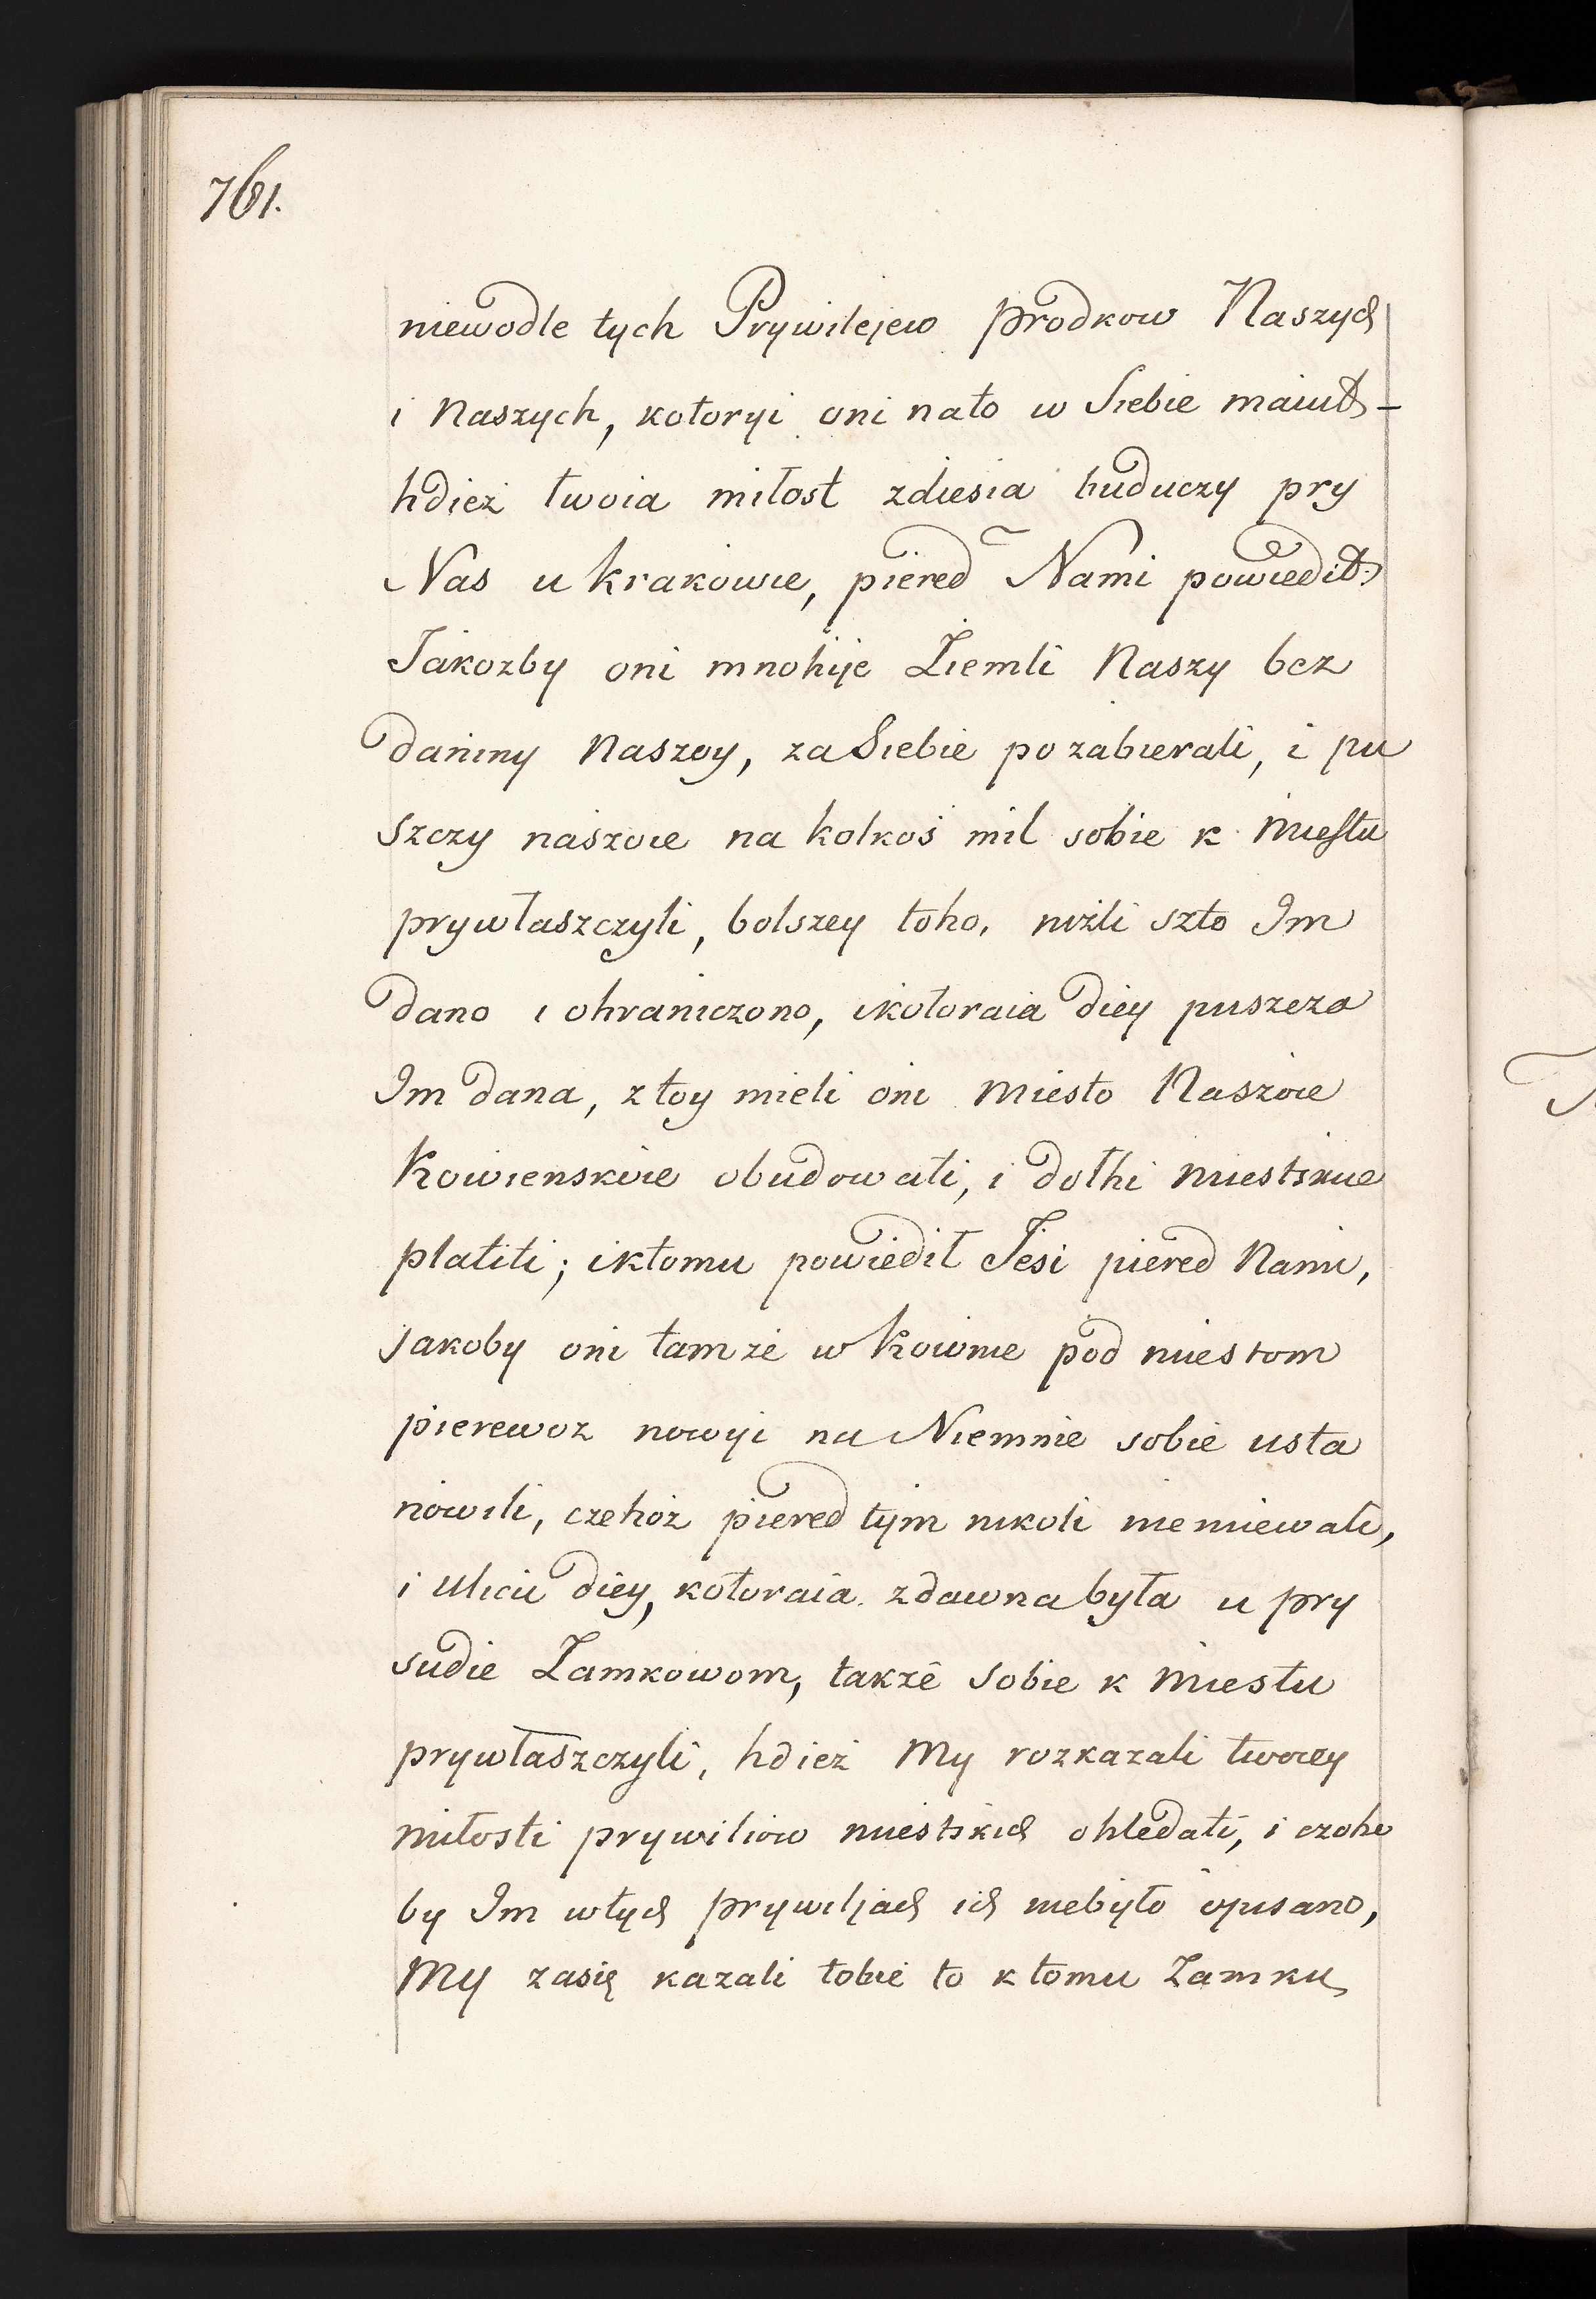 761.
niewodle tych Prywilejew prodkow Naszych
i Naszych, kotoryi oni nato w Siebie maiut –
hdież twoia miłost zdiesia buduczy pry
Nas u Krakowie, piered Nami powiedił
Jakożby oni mnohije Ziemli Naszy bez
daniny Naszoy, za Siebie pozabierali, i pu
szczy naszoie na kolkoś mil sobie k miestu
prywłaszczyli, bolszey toho, niżli szto Im
dano i ohraniczono, ikotoraia diey puszcza
Im dana, z toy mieli oni Miesto Naszoie
Kowienskoie obudowati, i dołhi miestskie
płatiti; iktomu powiedił Jesi piered Nami,
jakoby oni tamże w Kownie pod miestom
pierewoz nowyi na Niemnie sobie usta
nowili, czehoż piered tym nikoli niemiewali,
i Uliciu diey, kotoraia zdawna była u pry
sudie Zamkowom, także Sobie k Miestu
prywłaszczyli, hdież My rozkazali twoiey
miłosti prywiliow miestskich ohledati, i czoho
by Im wtych prywiljach ich niebyło opisano,
My zasię kazali tobie to k tomu Zamku